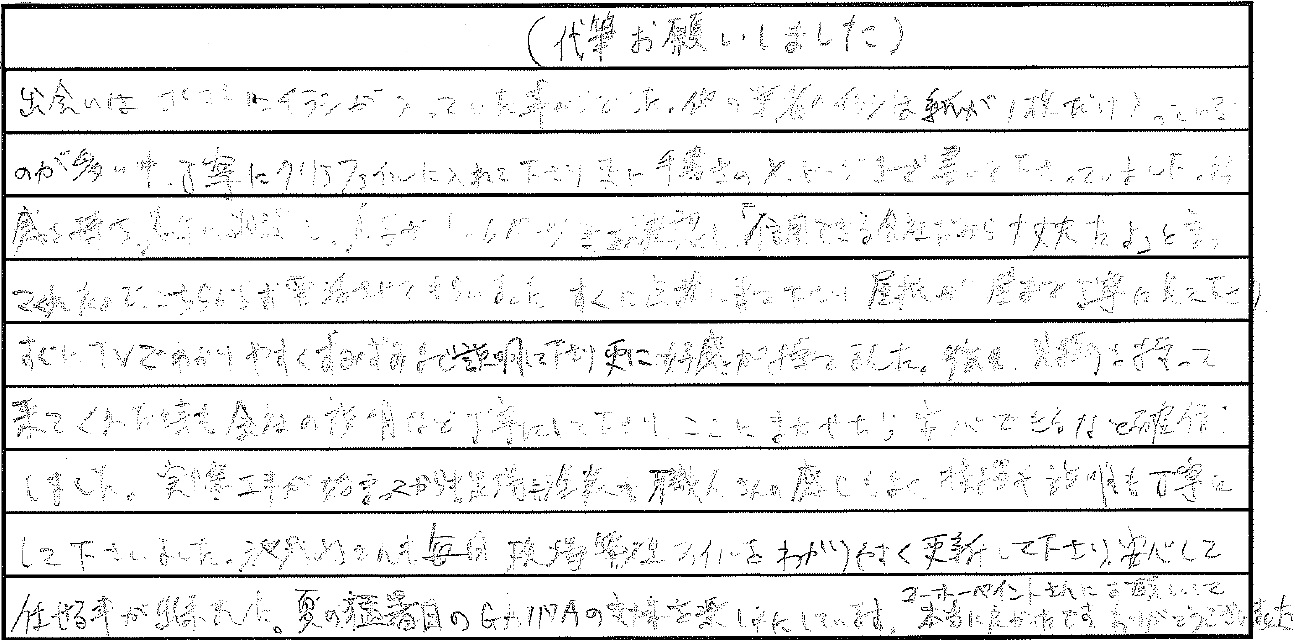 (代筆お願いしました)
出会いは にチラシが入っていた事からでした。他の業者のチラシは紙が1枚だけ入っている
のが多い中、丁寧にクリアファイルに入れて下さり更に手書きのメッセージまで書いて下さっていました。好
感を持ち、 し、 ホームページを確認し「信用できる会社だから大丈夫だよ」と言っ
てくれたのでこちらからお電話させてもらいました すぐに点検に来って下さり 屋根から 丁寧に見て下さり
すぐにTVでわかりやすくすみずみまで説明して下り更に好感が持てました。後日、見積りを持って
来てくれた時も会社の説明など丁寧にして下さり、ここにまかせたら安心できるなと確信
しました。実際工事が始まってからも 足場 塗装も職人さんの感じもよく 挨拶や説明も丁寧に
して下さいました。 さんも毎日現場管理ファイルをわかりやすく更新して下さり安心して
任せる事が出来ました。夏の猛暑日のGAINAの効果を楽しみにしています。
ユーホーペイントさんにお願いして
本当によかったです ありがとうございました